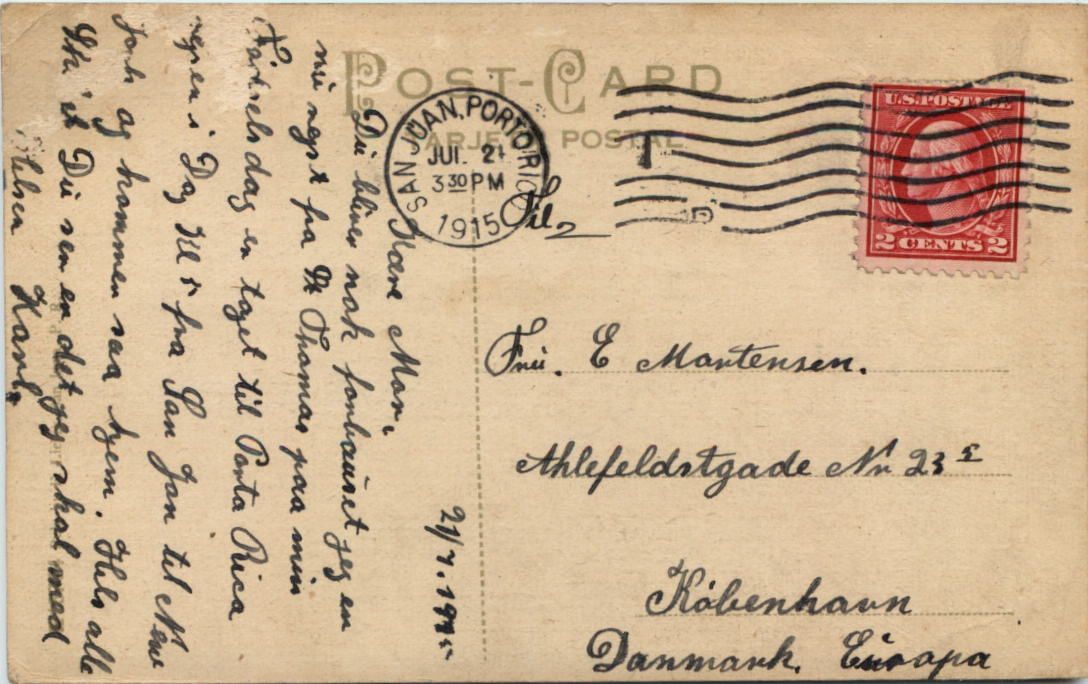 POST-CARD
TARJETA POSTAL
SAN JUAN, PORTO RICO
JUL 21
3 30 PM
1915
U.S. POSTAGE
2 CENTS 2
Til
Frü. E Mortensen.
Ahlefeldstgade Nr 23 E
København
Danmark. Europa
21/7. 1915
Kære Mor.
Dü bliver nok forbaüset jeg en
nü rejst fra St Thomas paa min
Fødselsdag en taget til Porto Rica
i Dag Kl 5 fra San Jan til New
York og kommer saa hjem. Hils alle
Dü ser en det jeg skal med
Hilsen Karl.